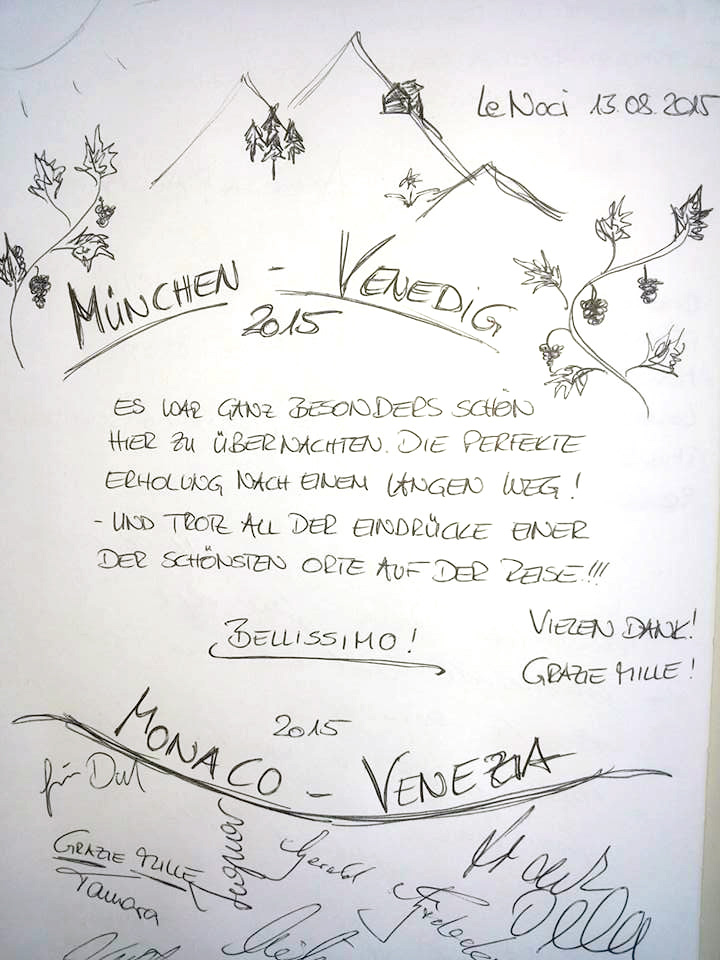 Le Noci 13.08.2015
MÜNCHEN - VENEDIG
2015
ES WAR GANZ BESONDERS SCHÖN
HIER ZU ÜBERNACHTEN. DIE PERFEKTE
ERHOLUNG NACH EINEM LANGEN WEG!
- UND TROTZ ALL DER EINDRÜCKE EINER
DER SCHÖNSTEN ORTE AUF DER REISE!!!
BELLISSIMO!
VIELEN DANK!
GRAZIE MILLE!
2015
MONACO - VENEZIA
GRAZIE MILLE
Tamara
Gerald